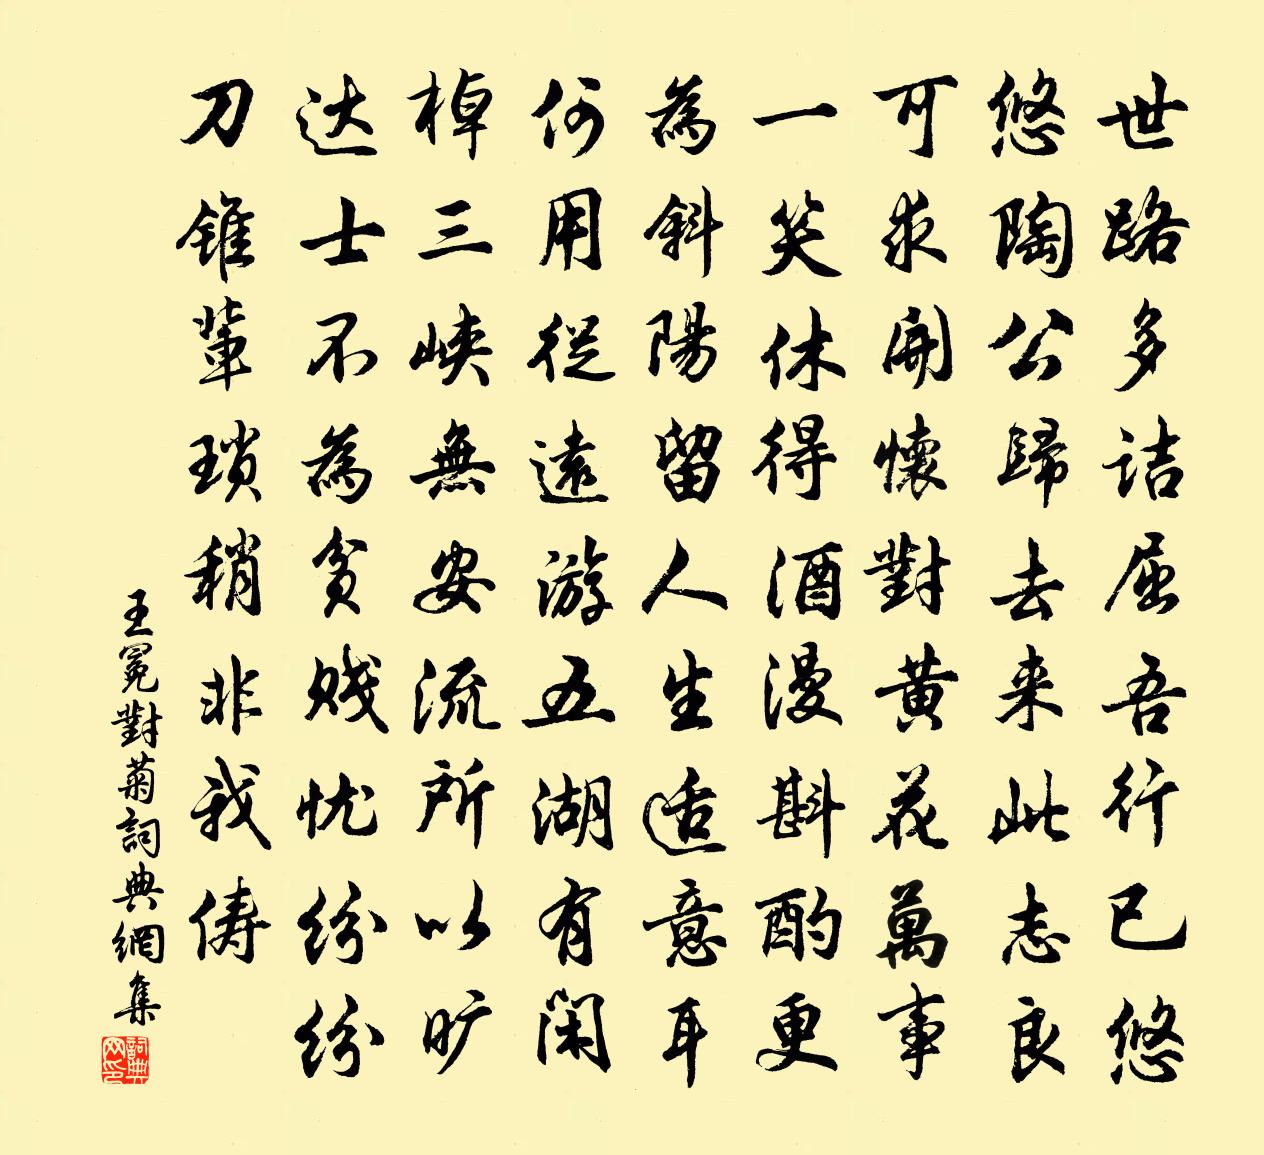 世路多诘屈吾行已悠
悠陶公歸去来此志良
可求開懷對黄花萬事
一笑休得酒漫斟酌更
為斜陽留人生适意耳
何用從遠游五湖有闲
棹三峡無安流所以旷
达士不為贫贱忧纷纷
刀锥輩瑣稍非我俦
王冕對菊詞典網集
詞典网印